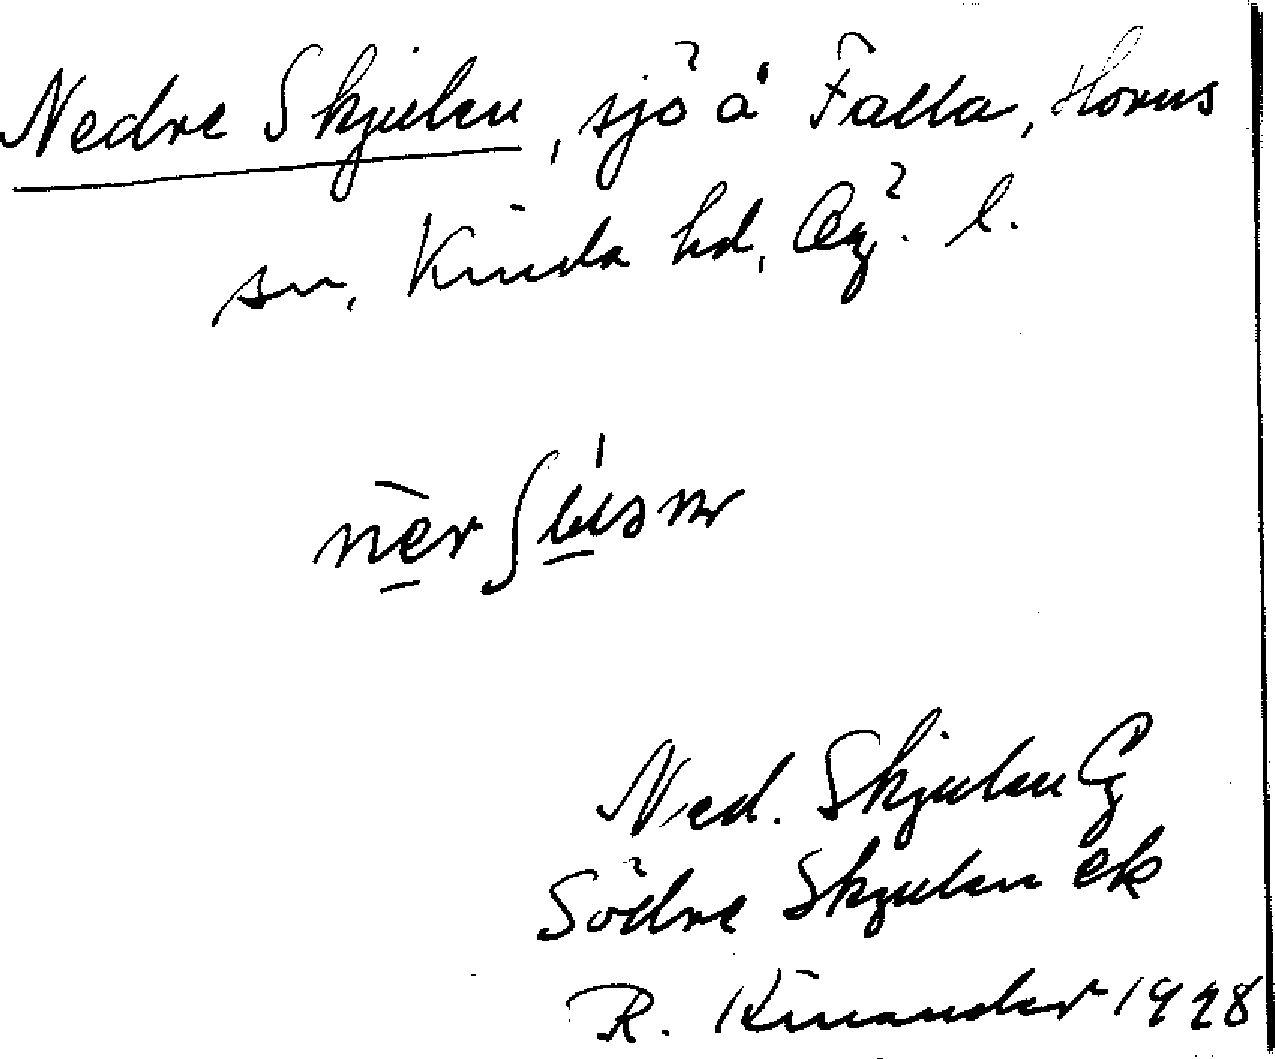 Nedre Skjulen, sjö å Falla, Horns
sn, Kinda hd, Ög. l.
Ned. Skjulen G
Södre Skjulen ek
R. Kinander 1928